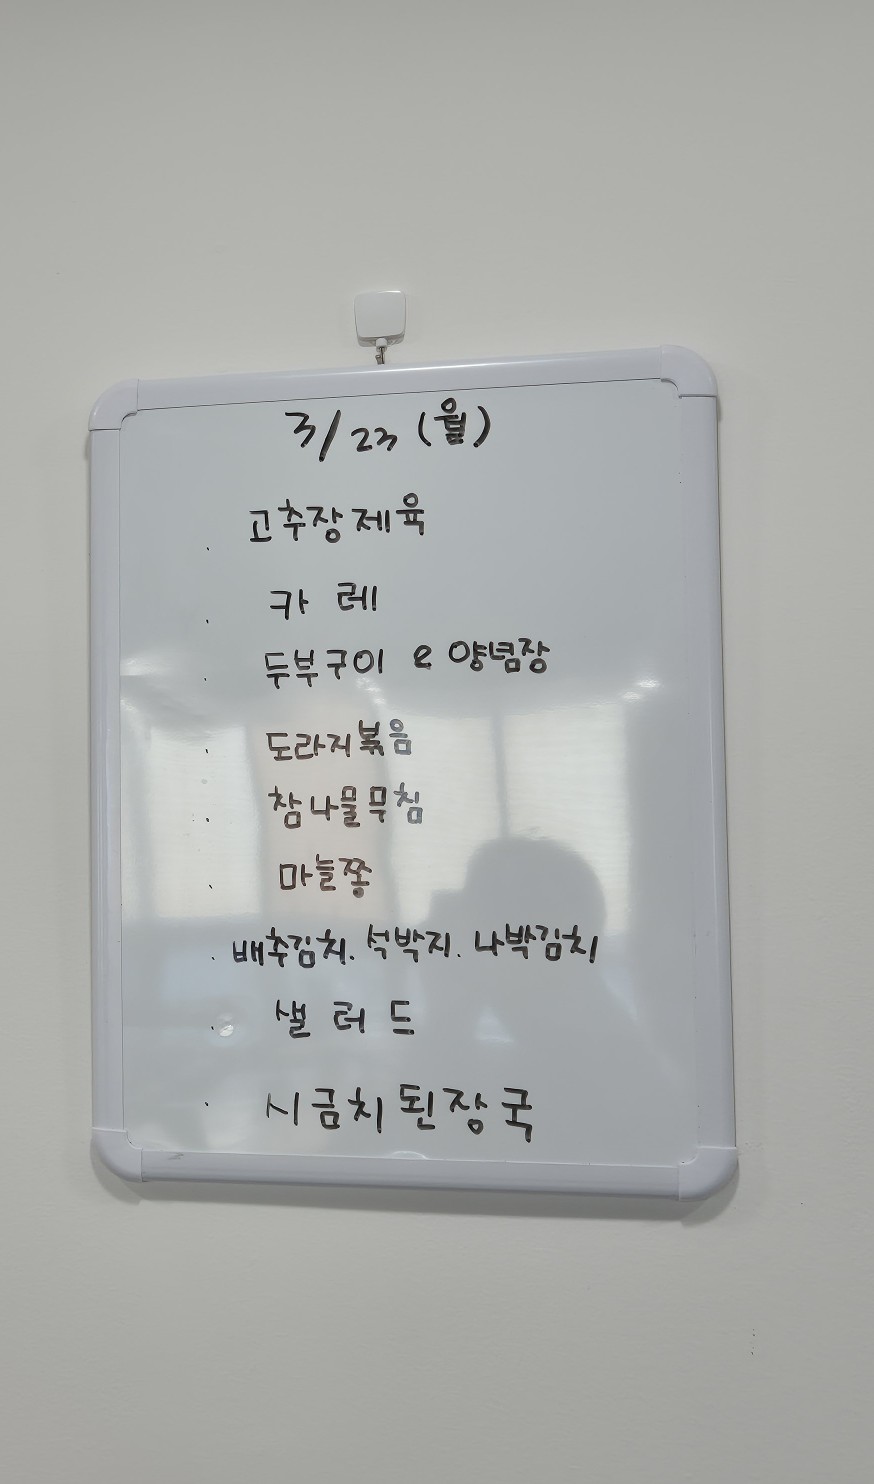 3/23 (월)
· 고추장제육
· 카레
· 두부구이 & 양념장
· 도라지볶음
· 참나물무침
· 마늘쫑
· 배추김치.석박지. 나박김치
· 샐러드
· 시금치된장국